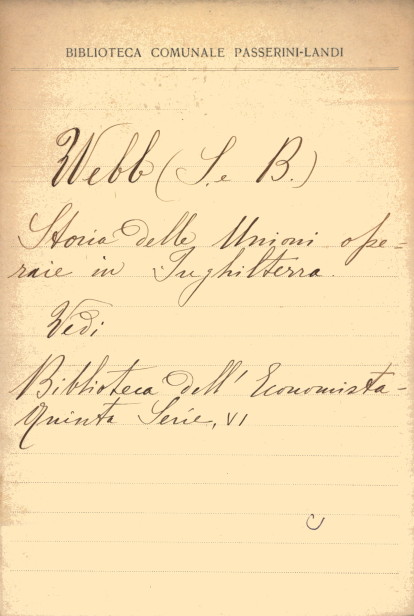 BIBLIOTECA COMUNALE PASSERINI-LANDI
Webb (S. e B.)
Storia delle Unioni ope-
raie in Inghilterra.
Vedi
Biblioteca dell' Economista-
Quinta Serie, VI